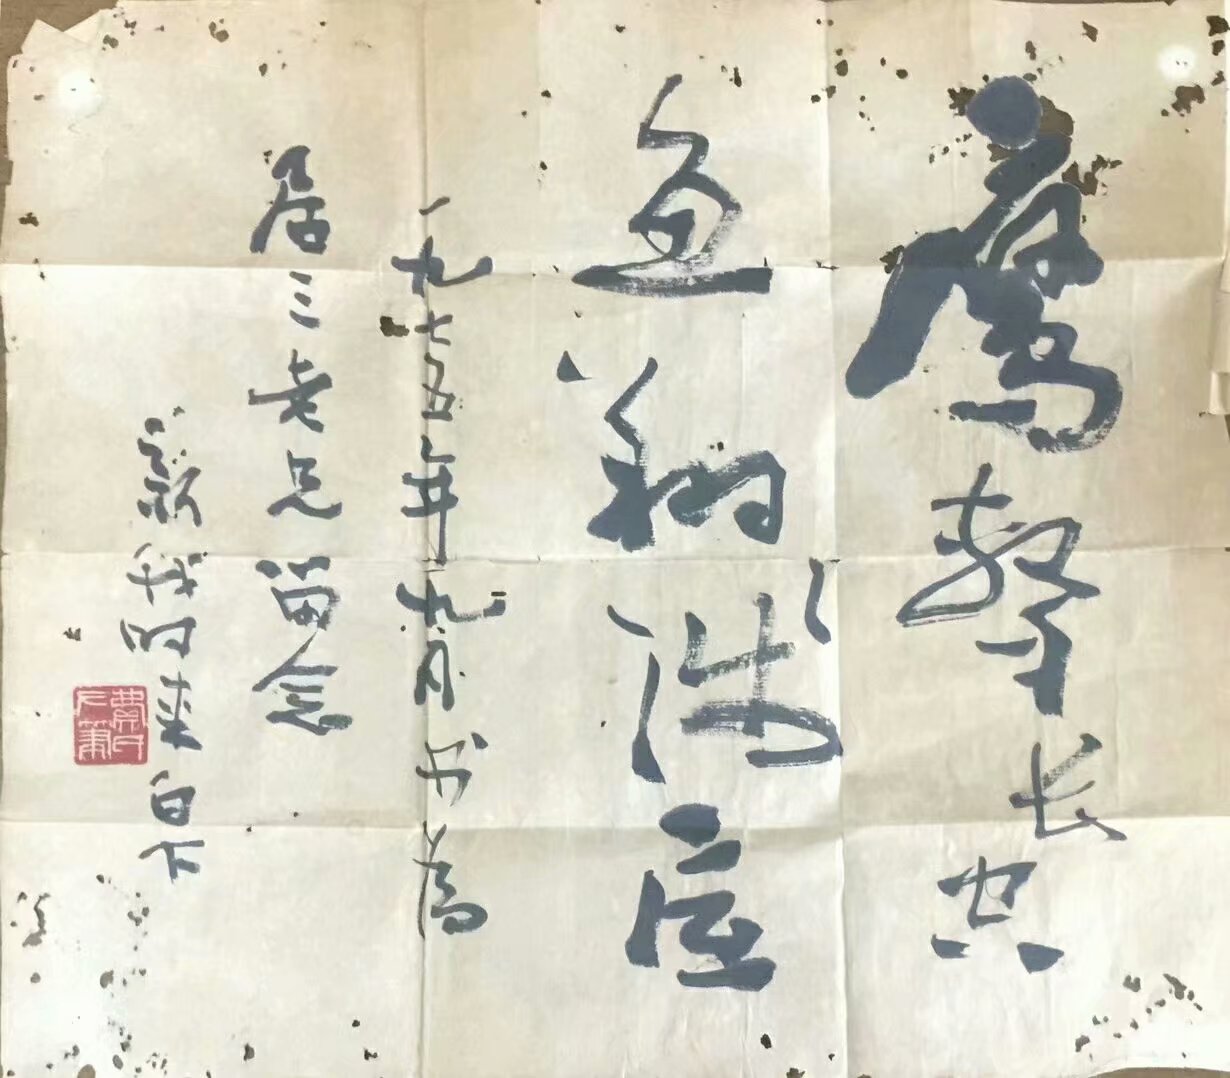 鹰擊长空
鱼翔浅底
一九七五年九月书为
居三老兄留念
新我时来白下
費氏左筆